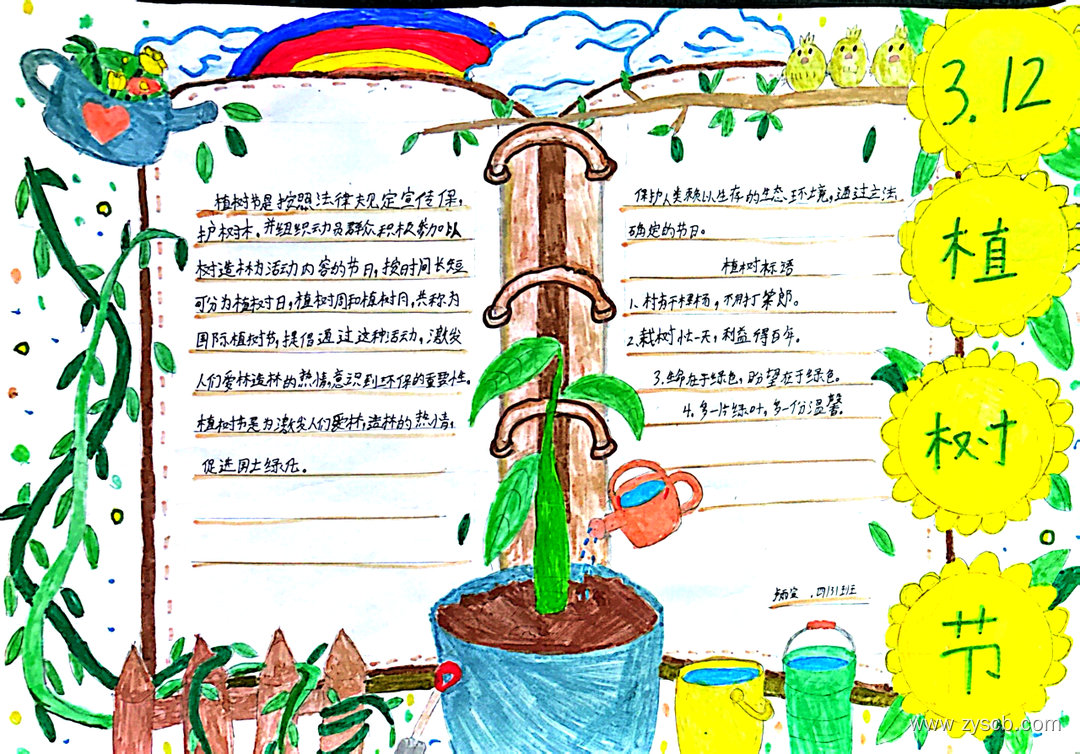 植树节是按照法律规定宣传保,
护树木,并组织动员群众积极参加以
树造林为活动内容的节日,按时间长短
可分为植树日,植树周和植树月,共称为
国际植树节,提倡通过这种活动,激发
人们爱林造林的热情,意识到环保的重要性。
植树节是为激发人们爱林,造林的热情,
促进国土绿化。
保护人类赖以生存的生态环境,通过立法
确定的节日。
植树标语
2.栽树忙一天,利益得百年。
3.生命在于绿色,盼望在于绿色。
4.多一片绿叶,多一份温馨。
3.12
植
树
节
www.zyscb.com